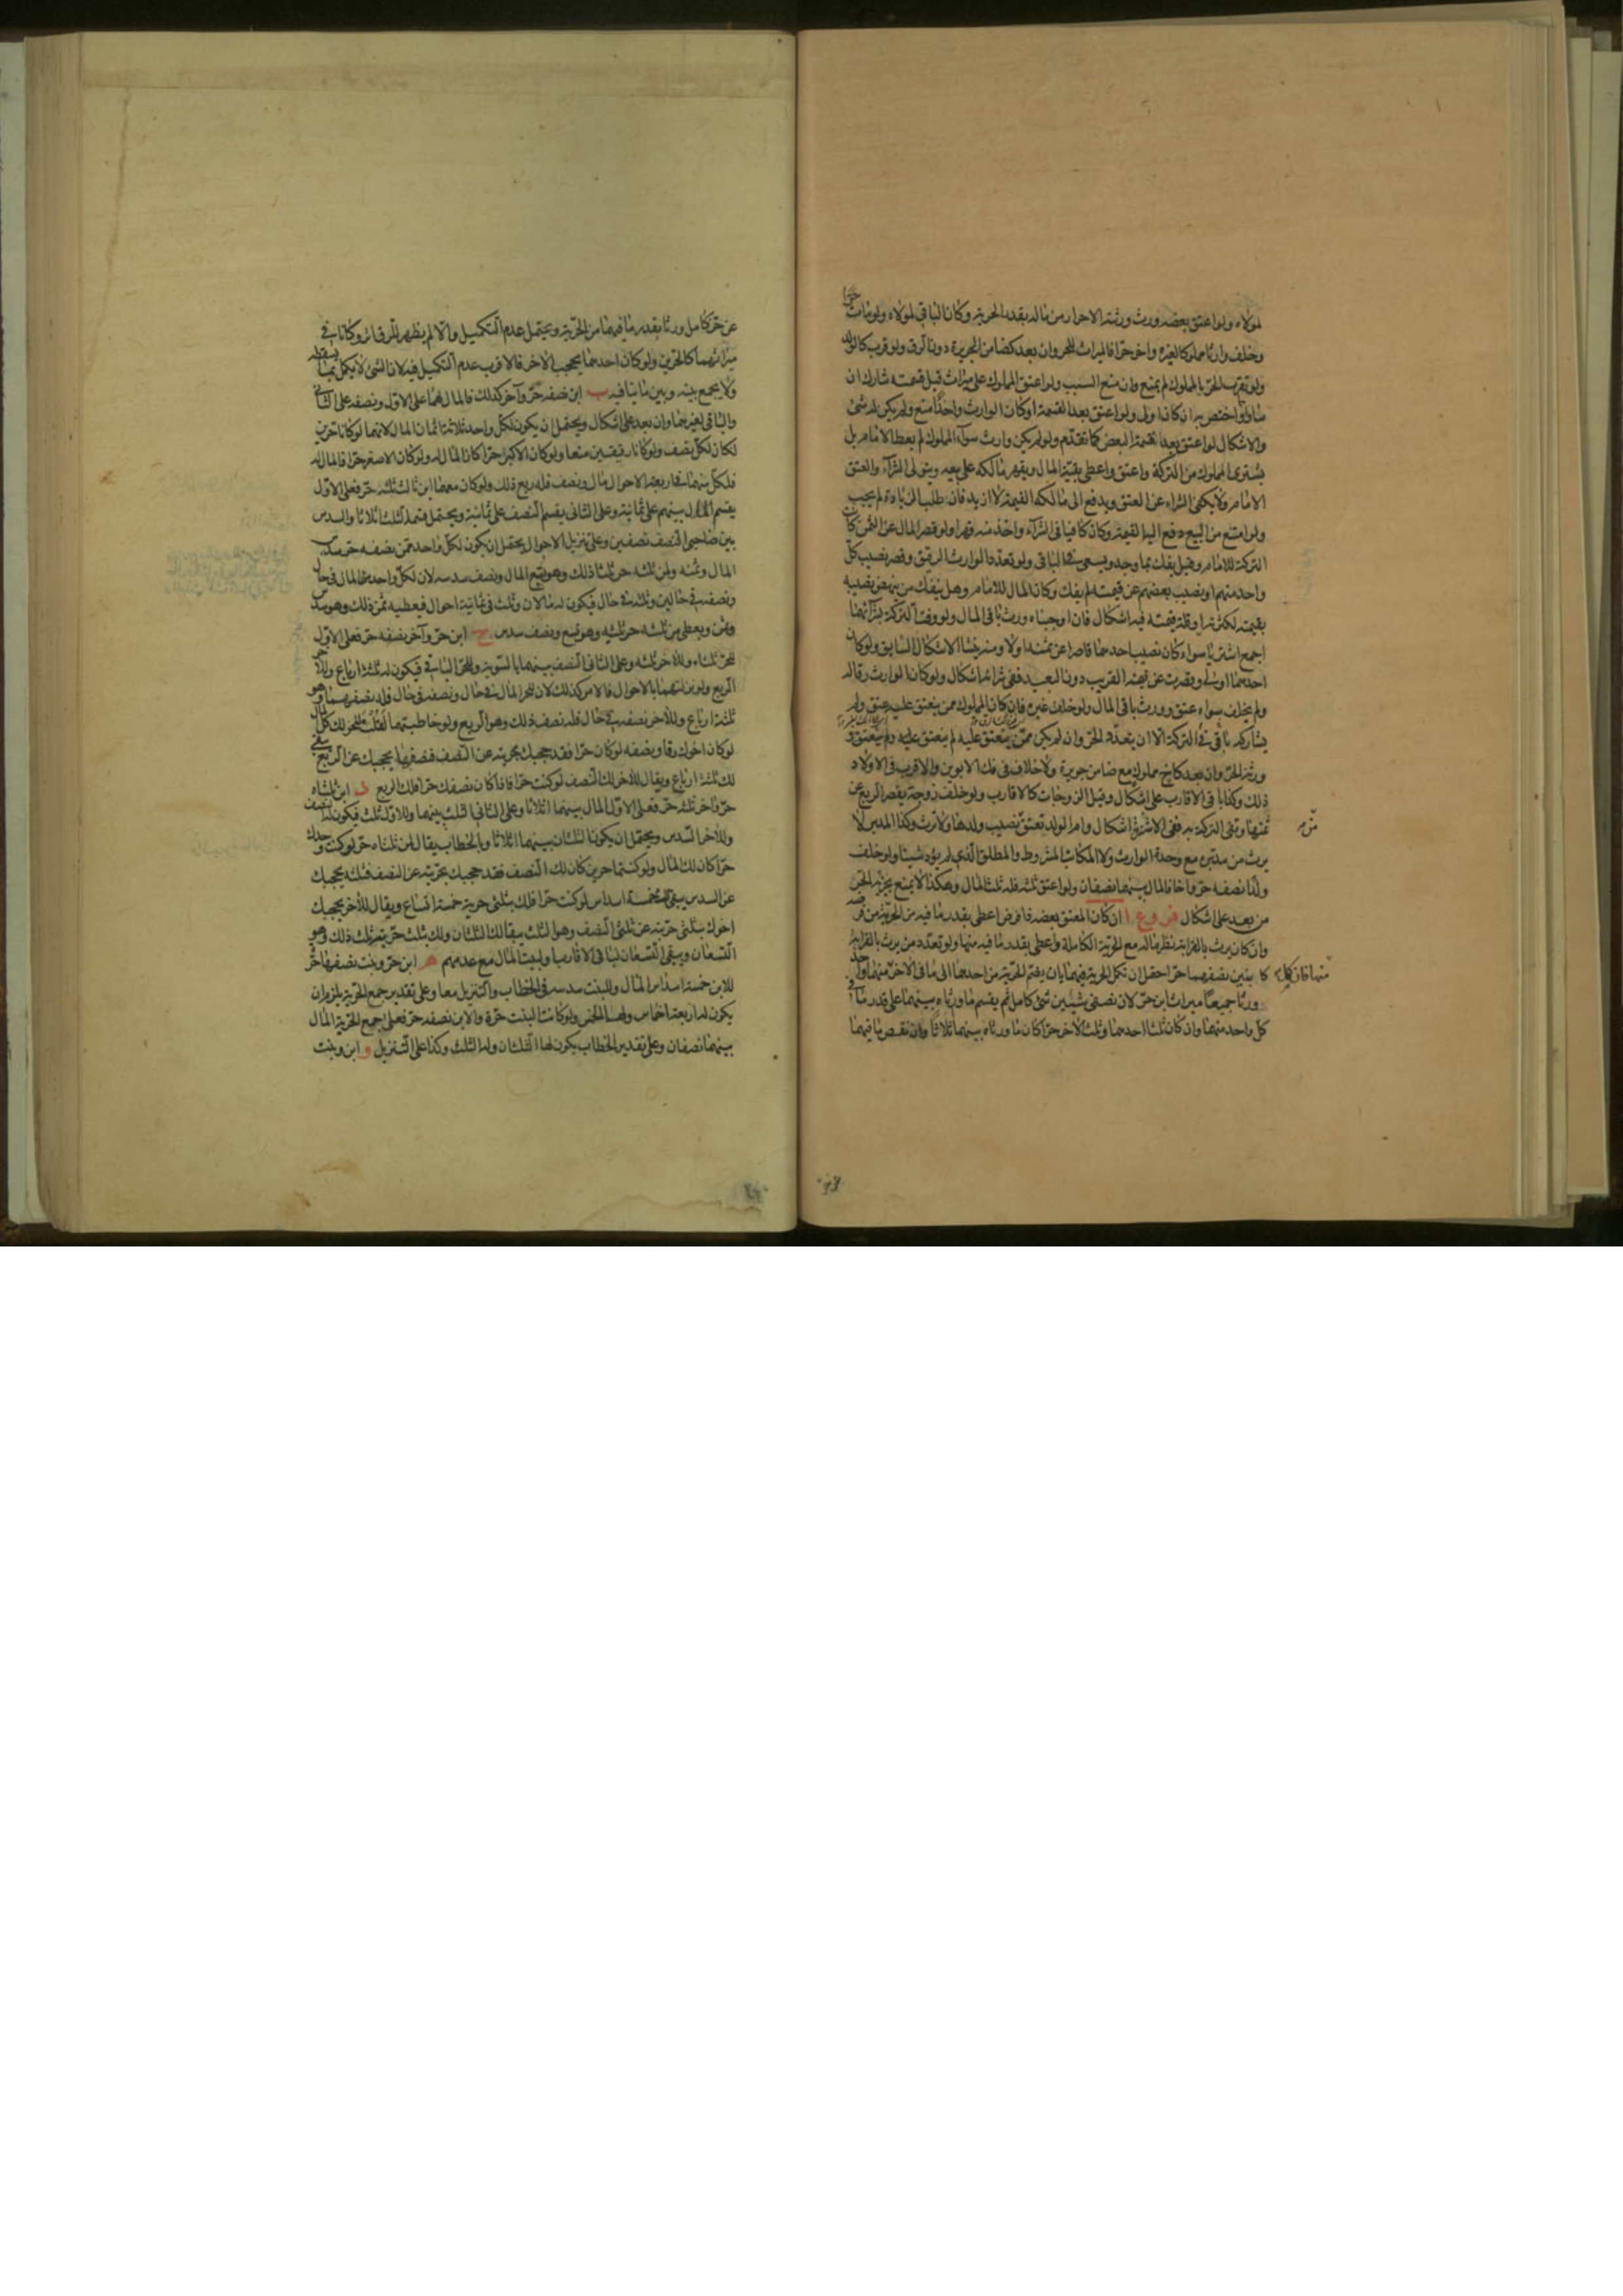 لمولاه ولو اعتق بعضه ورث ورثته الاحرار من ماله بقدر الحرية وكان الباقي لمولاه ولو مات حر
وخلف وارثا مملوكا لغيره واخر حرا فالميراث للحر وان بعد كضامن الجريرة دون الرق ولو قرب كالولد
ولو تقرب الحر بالمملوك لم يمنع وان منع السبب ولو اعتق المملوك على ميراث قبل قسمته شارك ان
ساوى واختص به ان كان اولى ولو اعتق بعد القسمة او كان الوارث واحدا منع ولم يكن له شئ
والاشكال لو اعتق بعد قسمة البعض كما تقدم ولو لم يكن وارث سوى المملوك لم يعط الامام بل
يشترى المملوك من التركة واعتق واعطى بقية المال ويقهر مالكه على بيعه ويتولى الشراء والعتق
الامام ولا يكفى الشراء عن العتق ويدفع الى مالكه القيمة لا ازيد فان طلب الزيادة لم يجب
ولو امتنع من البيع دفع اليه القيمة وكان كافيا في الشراء واخذ منه قهرا ولو قصر المال عن الثمن كان
التركة للامام وقيل يفك بما وجد ويسعى في الباقى ولو تعدد الوارث الرقيق وقصر نصيب كل
واحد منهم او نصيب بعضهم عن قيمته لم يفك وكان المال للامام وهل يفك من ينهض نصيبه
بقيمته لكثرته او قلة قيمته فيه اشكال فان اوجبناه ورث باقى المال ولو وفت التركة بشرائهما
اجمع اشتريا سواء كان نصيب احدهما قاصرا عن ثمنه اولا ومنه ينشا الاشكال السابق ولو كان
احدهما اولى وقصرت عن قيمة القريب دون البعيد ففى شرائه اشكال ولو كان الوارث رقا له
ولم يخلف سواه عتق وورث باقى المال ولو خلف غيره فان كان المملوك ممن ينعتق عليه عتق ولم
يشاركه باقى في التركة الا ان يتعدد الحر وان لم يكن ممن ينعتق عليه لم ينعتق عليه ولم ينعتق و
ورثه الحر وان بعد كابن مملوك مع ضامن جريرة ولا خلاف في فك الابوين والاقرب في الاولاد
ذلك وكذا باقى الاقارب على اشكال وقيل الزوجات كالاقارب ولو خلف زوجة يقصر الربع عن
ثمنها وتفى التركة به ففى الاشتراء اشكال وام الولد تعتق نصيب ولدها ولا ترث وكذا المدبر لا
يرث من مدبره مع وحدة الوارث ولا المكاتب المشروط والمطلق الذي لم يؤد شيئا ولو خلف
ولدا نصفه حر واخا فالمال بينهما نصفان ولو اعتق ثلثه فله ثلث المال وهكذا لا يمنع بجزئه الحر
من بعد على اشكال فروع ا ان كان المعتق بعضه ذا فرض اعطى بقدر ما فيه من الحرية من فرضه
وان كان يرث بالقرابة نظر ماله مع الحرية الكاملة واعطى بقدر ما فيه منها ولو تعدد من يرث بالقرابة
كابنين نصفهما حر احتمل ان تكمل الحرية فيهما بان يضم الحرية من احدهما الى ما في الاخر منهما فان كمل واحد
ورثا جميعا ميراث ابن حر لان نصفى شيئين شئ كامل ثم يقسم ما ورثاه بينهما على قدر ما في
كل واحد منهما وان كان ثلثا احدهما وثلث الاخر حرا كان ما ورثاه بينهما ثلاثا وان نقص ما فيهما
عن حر كامل ورثا بقدر ما فيهما من الحرية ويحتمل عدم التكميل والا لم يظهر للرق اثر وكانا في
ميراثهما كالحرين ولو كان احدهما يحجب الاخر فالاقرب عدم التكميل فيه لان الشئ لا يكمل بما يسقطه
ولا يجمع بينه وبين ما ينافيه ب ابن نصفه حر وآخر كذلك فالمال لهما على الاول ونصفه على الثاني
والباقى لغيرهما وان بعد على اشكال ويحتمل ان يكون لكل واحد ثلاثة اثمان المال لانهما لو كانا حرين
لكان لكل نصف ولو كانا رقيقين منعا ولو كان الاكبر حرا كان المال له ولو كان الاصغر حرا فالمال له
فلكل منهما في اربعة الاحوال مال ونصف فله ربع ذلك ولو كان معهما ابن ثالث ثلثه حر فعلى الاول
يقسم المال بينهم على ثمانية وعلى الثانى يقسم النصف على ثمانية ويحتمل قسمة الثلث اثلاثا والسدس
بين صاحبى النصف نصفين وعلى تنزيل الاحوال يحتمل ان يكون لكل واحد ممن نصفه حر سدس
المال وثمنه ولمن ثلثه حر ثلثا ذلك وهو تسع المال ونصف سدسه لان لكل واحد منهما المال في حال
ونصفه في حالين وثلثه في حال فيكون له مالان وثلث في ثمانية احوال فيعطيه ثمن ذلك وهو سدس
وثمن ويعطى من ثلثه حر ثلثيه وهو تسع ونصف سدس ج ابن حر وآخر نصفه حر فعلى الاول
للحر ثلثاه وللاخر ثلثه وعلى الثانى النصف بينهما بالسوية وللحر الباقى فيكون له ثلثة ارباع وللاخر
الربع ولو نزلتهما بالاحوال فالامر كذلك لان للحر المال في حال ونصفه في حال فله نصفهما وهو
ثلثة ارباع وللاخر نصفه في حال فله نصف ذلك وهو الربع ولو خاطبتهما لقلت للحر لك كل المال
لو كان اخوك رقا ونصفه لو كان حرا فقد حجبك بحريته عن النصف فنصفها يحجبك عن الربع يبقى
لك ثلثة ارباع ويقال للاخر لك النصف لو كنت حرا فاذا كان نصفك حرا فلك الربع د ابن ثلثاه
حر واخر ثلثه حر فعلى الاول المال بينهما اثلاثا وعلى الثانى الثلث بينهما وللاول ثلث فيكون له النصف
وللاخر السدس ويحتمل ان يكون الثلثان بينهما اثلاثا وبالخطاب يقال لمن ثلثاه حر لو كنت وحدك
حرا كان لك المال ولو كنتما حرين كان لك النصف فقد حجبك بحريته عن النصف فثلثه يحجبك
عن السدس يبقى لك خمسة اسداس لو كنت حرا فلك بثلثى حرية خمسة اتساع ويقال للاخر يحجبك
اخوك بثلثى حريته عن ثلثى النصف وهو الثلث يبقى لك الثلثان ولك بثلث حريته ثلث ذلك وهو
التسعان ويبقى التسعان لباقى الاقارب او لبيت المال مع عدمهم ه ابن حر وبنت نصفها حر
للابن خمسة اسداس المال وللبنت سدسه في الخطاب والتنزيل معا وعلى تقدير جمع الحرية يلزم ان
يكون له اربعة اخماس ولها الخمس ولو كانت البنت حرة والابن نصفه حر فعلى جمع الحرية المال
بينهما نصفان وعلى تقدير الخطاب يكون لها الثلثان وله الثلث وكذا على التنزيل و ابن وبنت